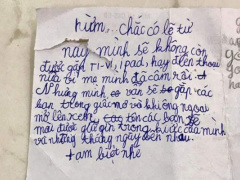 hừm... chắc có lẽ từ
nay mình sẽ không còn
được gặp Ti-Vi, Ipad, hay điện thoại
nữa bị mẹ mình đã cấm rồi
Nhưng mình vẫn sẽ gặp các
bạn trong giấc mơ và không ngoại
mở lên xem, tên các bạn sẽ
mãi được giữ gìn trong kí ức của mình
và những tháng ngày bên nhau.
tạm biệt nhé